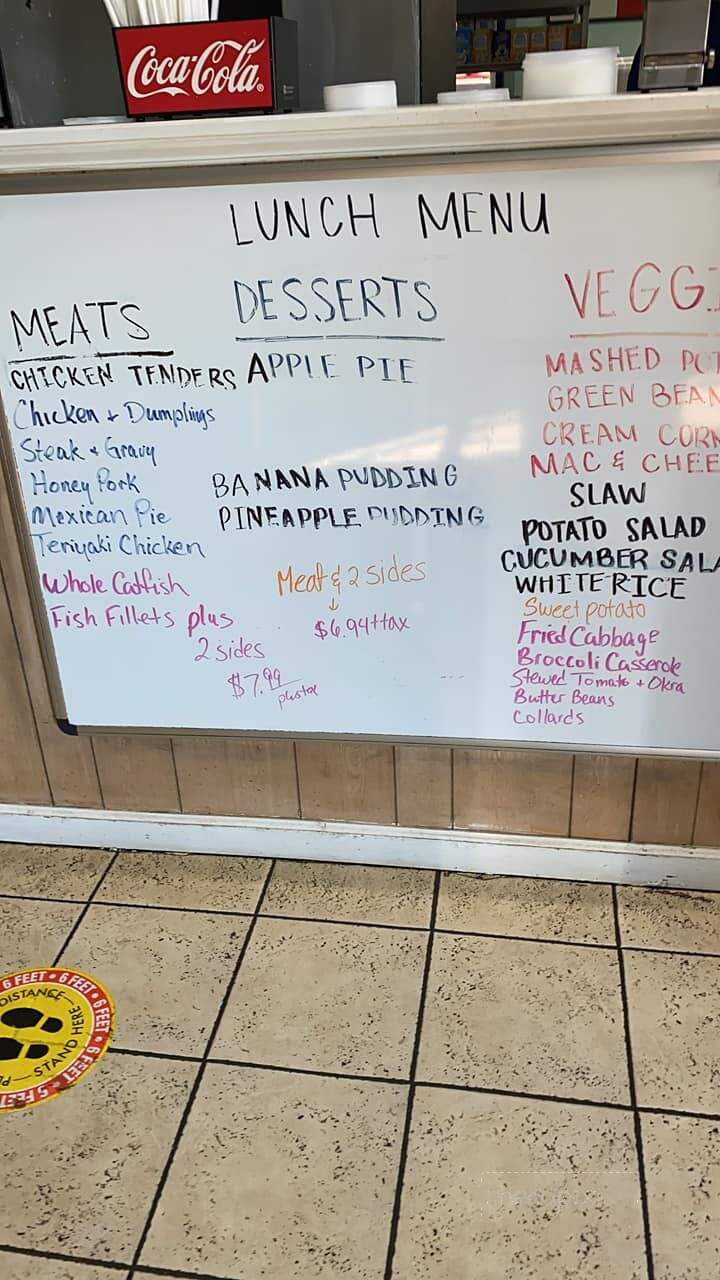 Coca-Cola
LUNCH MENU
MEATS
CHICKEN TENDERS
Chicken + Dumplings
Steak + Gravy
Honey Pork
Mexican Pie
Teriyaki Chicken
Whole Catfish
Fish Fillets plus
2 sides
$7.99
plus tax
DESSERTS
APPLE PIE
BANANA PUDDING
PINEAPPLE PUDDING
Meat & 2 sides
$6.94+tax
VEGGI
MASHED POT
GREEN BEAN
CREAM CORN
MAC & CHEE
SLAW
POTATO SALAD
CUCUMBER SALA
WHITE RICE
Sweet potato
Fried Cabbage
Broccoli Casserole
Stewed Tomato + Okra
Butter Beans
Collards
6 FEET • 6 FEET • 6 FEET
DISTANCE
STAND HERE